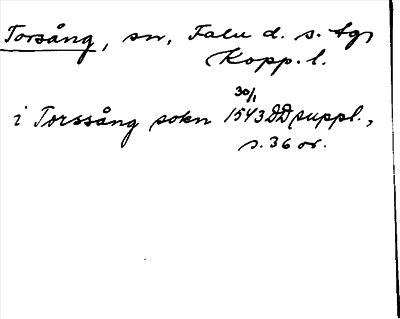 Torsång, sn, Falu d. s. tg,
Kopp. l.
30/1
i Torssång sokn 1543 DD suppl.,
s. 36 or.